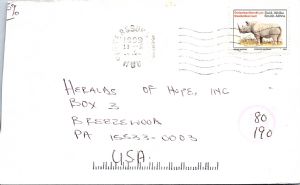 Suid-Afrika
South Africa
HERALDS OF HOPE, INC
BOX 3
BREEZEWOOD
PA 15533-0003
USA
80
190